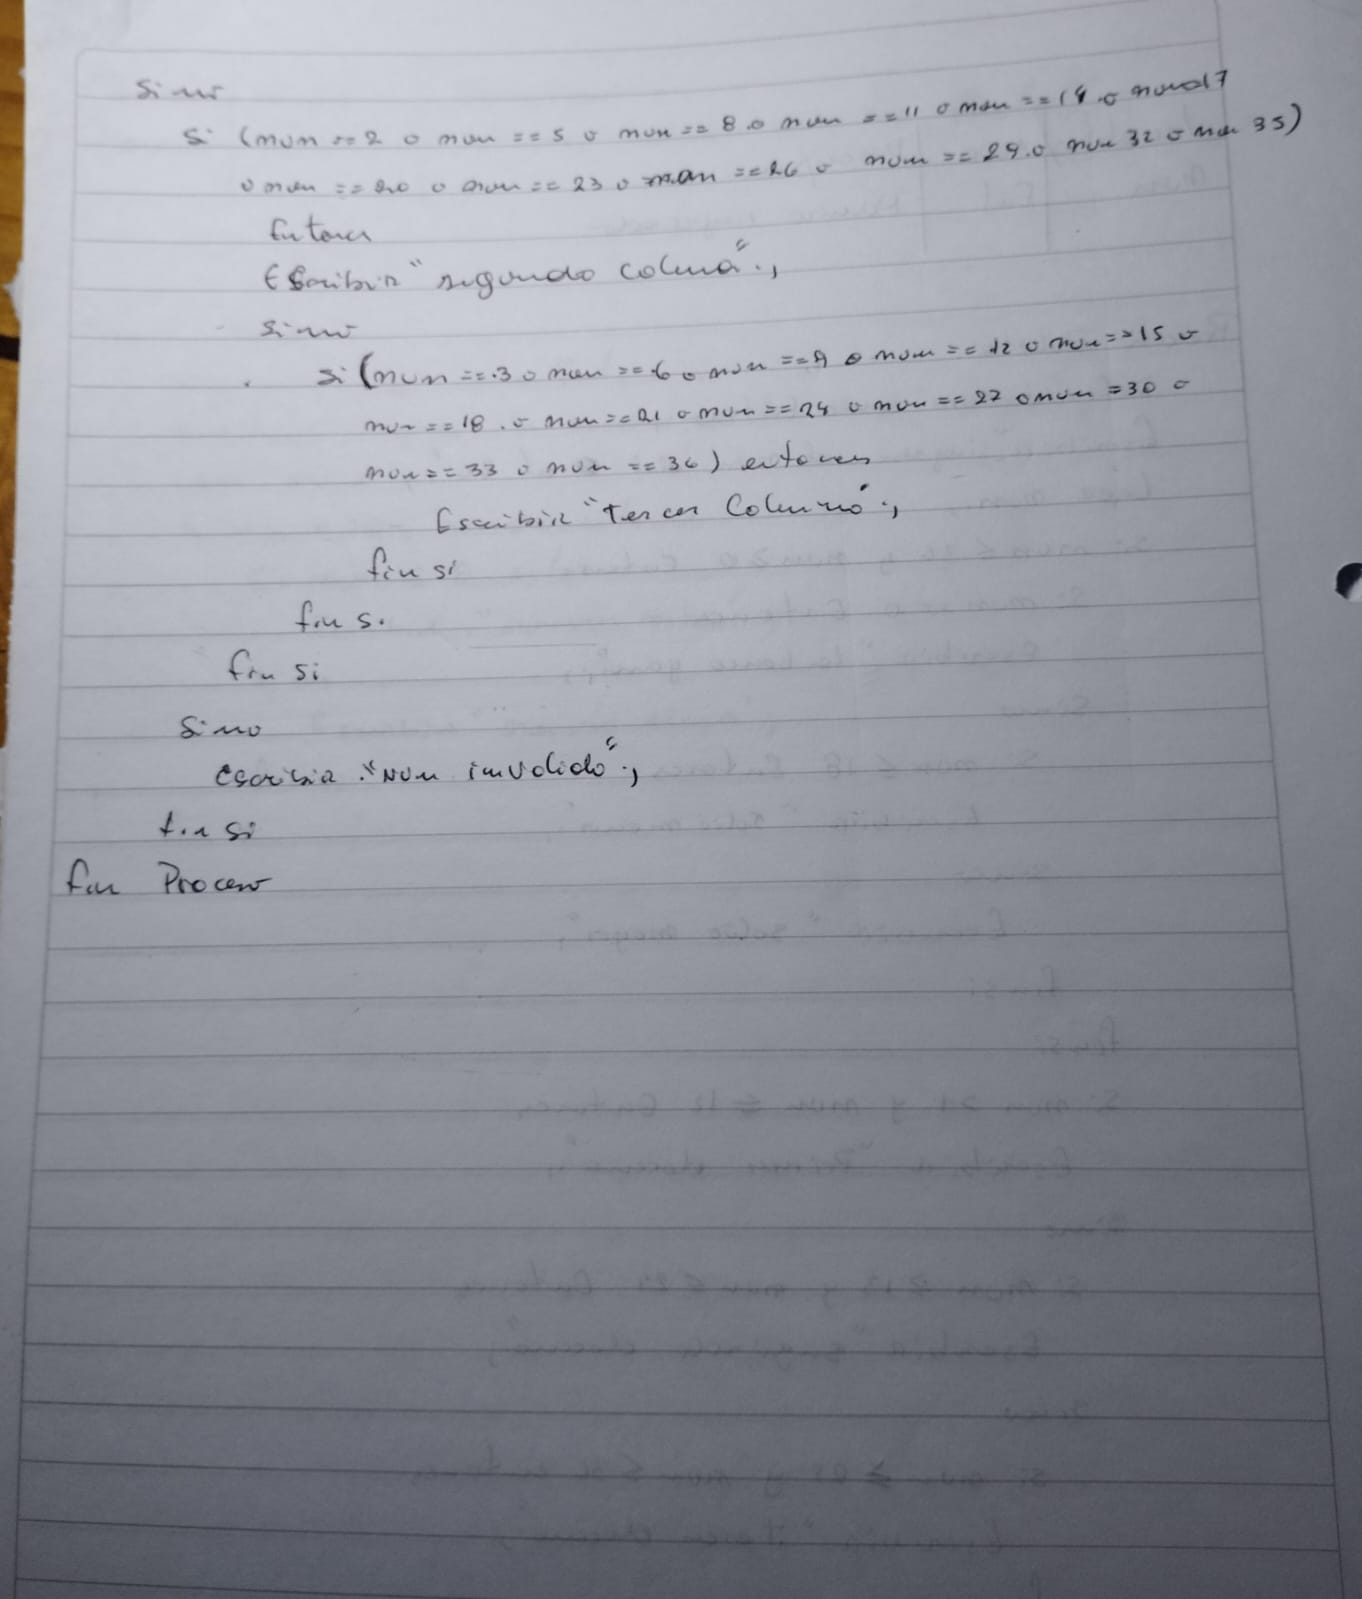 Sino
Si (num == 2 o num == 5 o num == 8 o num == 11 o num == 14 o num==17
o num == 20 o num == 23 o num == 26 o num == 29 o num 32 o num 35)
Entonces
Escribir "segundo coluna";
sino
si (num == 3 o num == 6 o num == 9 o num == 12 o num == 15 o
num == 18 o num == 21 o num == 24 o num == 27 o num = 30 o
num == 33 o num == 36) entonces
Escribir "Tercer Columna";
fin si
fin si
fin si
Sino
Escribir "Num invalido";
fin si
fin Proceso